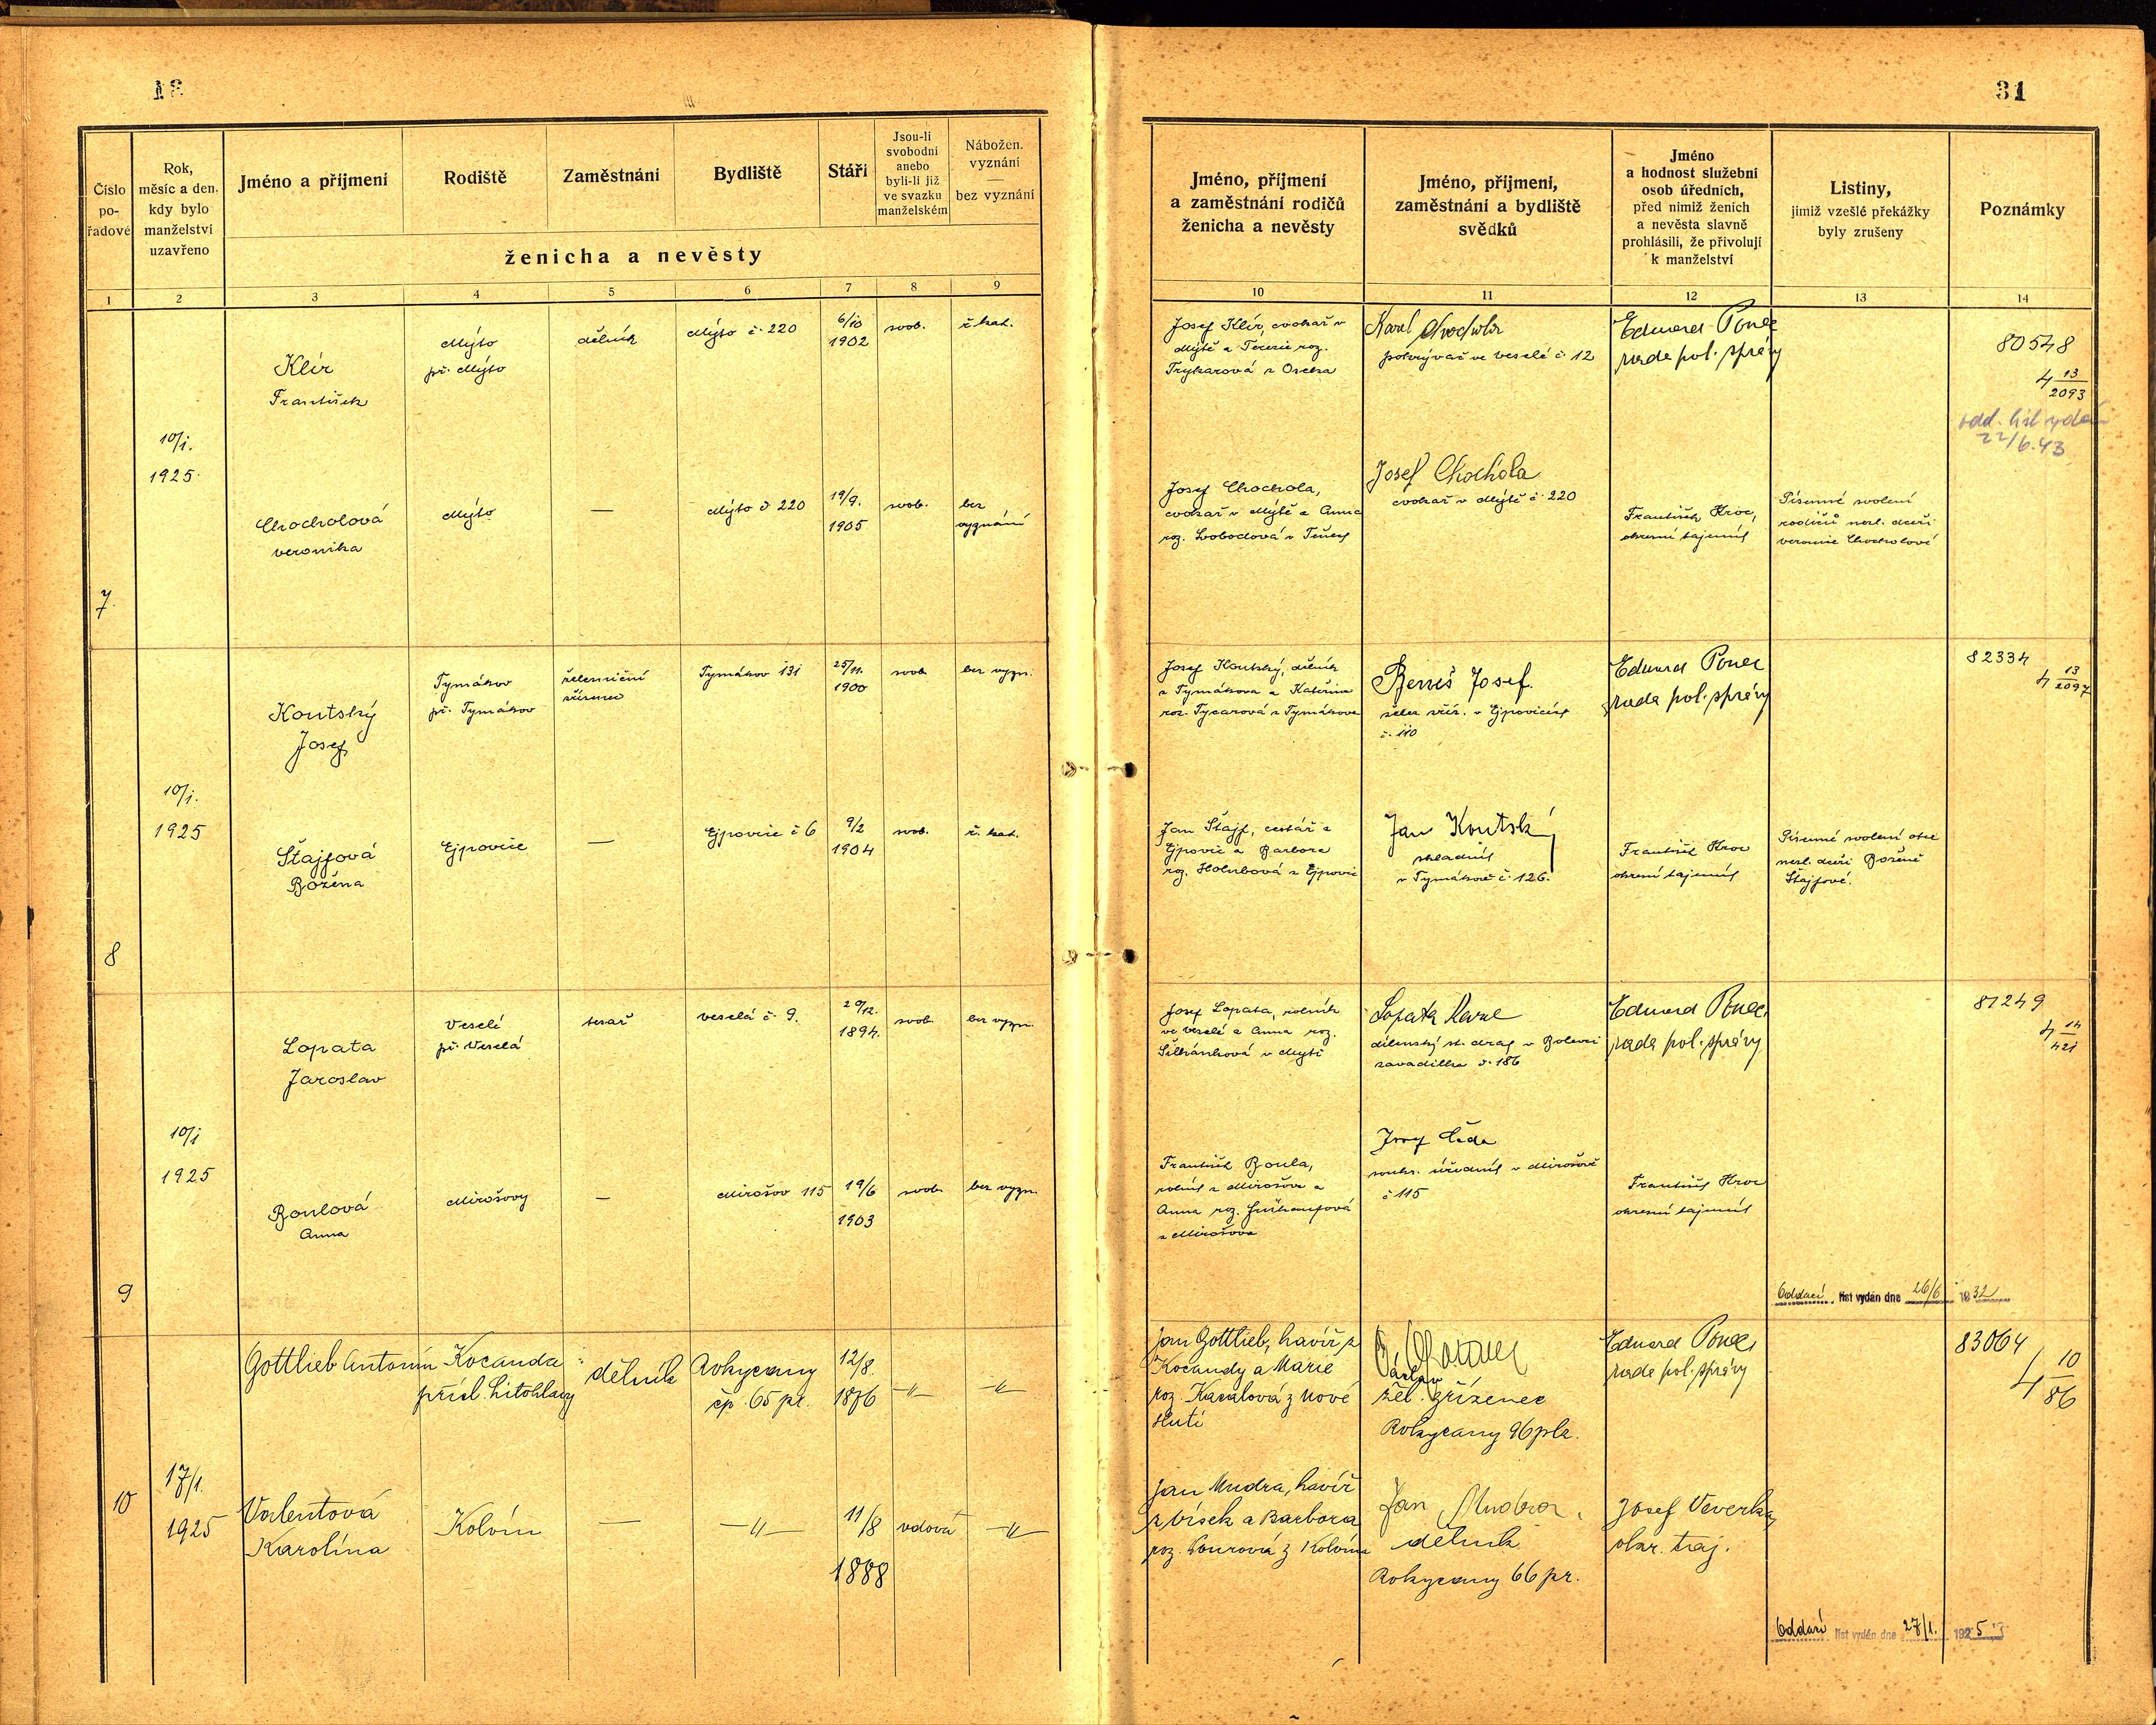 31
Číslo
po-
řadové
Rok,
měsíc a den,
kdy bylo
manželství
uzavřeno
Jméno a příjmení
Rodiště
Zaměstnání
Bydliště
Stáří
Jsou-li
svobodni
anebo
byli-li již
ve svazku
manželském
Nábožen.
vyznání
—
bez vyznání
ženicha a nevěsty
Jméno, příjmení
a zaměstnání rodičů
ženicha a nevěsty
Jméno, příjmení,
zaměstnání a bydliště
svědků
Jméno
a hodnost služební
osob úředních,
před nimiž ženich
a nevěsta slavně
prohlásili, že přivolují
k manželství
Listiny,
jimiž vzešlé překážky
byly zrušeny
Poznámky
1 2 3 4 5 6 7 8 9 10 11 12 13 14
7.
10/1.
1925.
Klír
František
Mýto
př. Mýto
dělník
Mýto č. 220
6/10
1902
svob.
ř. kat.
Josef Klír, cvokař v
Mýtě a Terezie roz.
z Oseka
Karel Chochola
pokrývač ve Veselé č. 12
Eduard Ponec
rada pol. správy
80548
4 13/2093
odd. list vydán
22/6.43
Chocholová
Veronika
Mýto
—
Mýto č 220
19/9.
1905
svob.
bez
vyznání
Josef Chochola,
cvokař v Mýtě a Anna
roz. Svobodová z
Josef Chochola
cvokař v Mýtě č. 220
František Kroc,
okresní tajemník
Písemné svolení
rodičů nezl. dceři
Veronice Chocholové
8
10/1.
1925
Koutský
Josef
Tymákov
př. Tymákov
železniční
zřízenec
Tymákov 131
25/11.
1900
svob.
bez vyzn.
Josef Koutský, dělník
z Tymákova a Kateřina
roz. z Tymákova
Beneš Josef.
želez. zříz. v Ejpovicích
č. 110
Eduard Ponec
rada pol. správy
82334
4 13/2097
Štajfová
Božena
Ejpovice
—
Ejpovice č 6
9/2
1904
svob.
ř. kat.
Jan Štajf, cestář z
Ejpovic a Barbora
roz. Holubová z Ejpovic
Jan Koutský
skladník
v Tymákově č. 126.
František Kroc
okresní tajemník
Písemné svolení otce
nezl. dceři Boženě
Štajfové.
9
10/1
1925
Lopata
Jaroslav
Veselá
př. Veselá
tesař
Veselá č. 9.
20/12.
1894.
svob.
bez vyzn.
Josef Lopata, rolník
ve Veselé a Anna roz.
v Mýtě
Lopata Karel
dílenský st. drah v Bolevci
zavadilka č. 186
Eduard Ponec,
rada pol. správy
81249
4 14/421
Boulová
Anna
Mirošovy
—
Mirošov 115
19/6
1903
svob.
bez vyzn.
František Boula,
rolník z Mirošova a
Anna roz.
z Mirošova
Josef
soukr. úředník v Mirošově
č 115
František Kroc
okresní tajemník
Oddací list vydán dne 26/6 1932
10
17/1.
1925
Gottlieb Antonín
Kocanda
přísl. Litohlavy
dělník
Rokycany
čp. 65 pr.
12/8.
1876
—"—
—"—
Jan Gottlieb, havíř z
Kocandy a Marie
roz. Kacalová z Nové
Huti
Václav
žel. zřízenec
Rokycany 96 plz.
Eduard Ponec,
rada pol. správy
83064
4 10/86
Valentová
Karolína
Kolvín
—
—"—
11/8
1888
vdova
—"—
Jan Mudra, havíř
z Vísek a Barbora
roz. z Kolvína
Jan Mudra,
dělník
Rokycany 66 pr.
Josef Veverka,
okr. taj.
Oddací list vydán dne 27/1. 1925